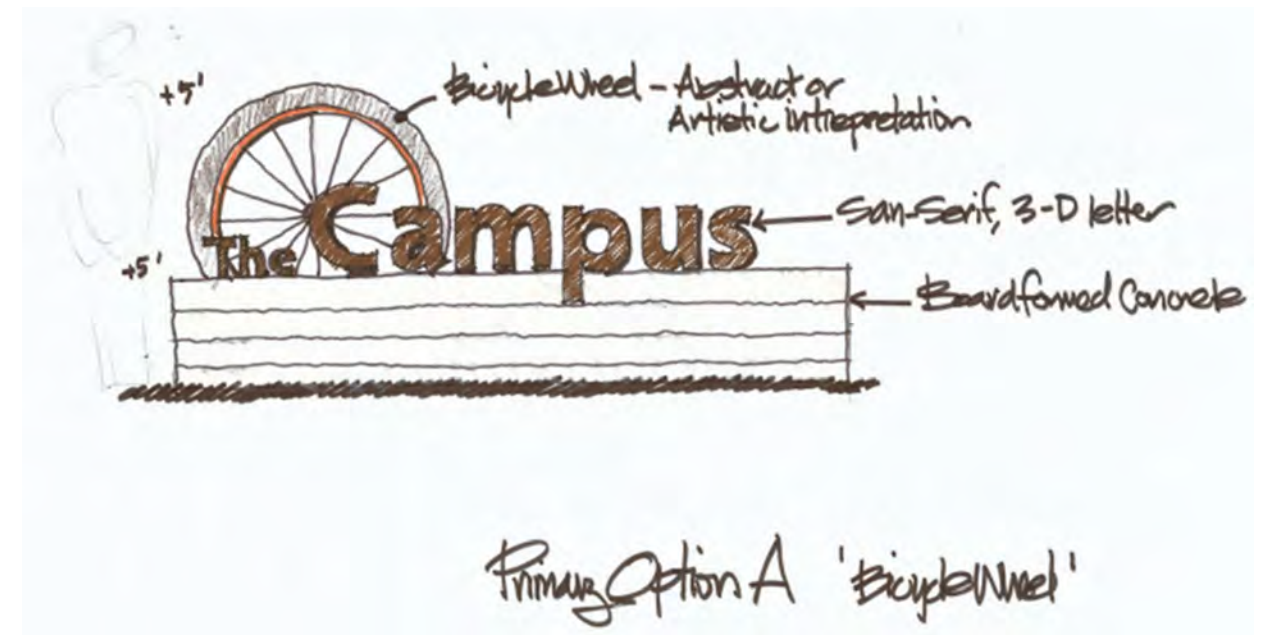 +5'
Bicycle Wheel - Abstract or
Artistic intrepretation
The Campus
San-Serif, 3-D letter
+5'
Boardformed Concrete
Primary Option A 'Bicycle Wheel'